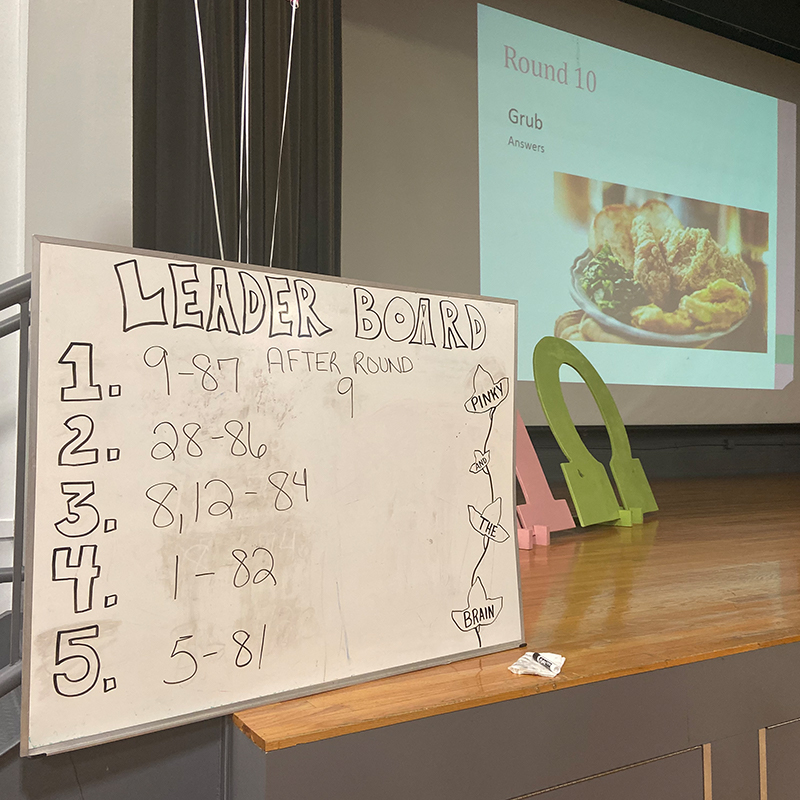 LEADER BOARD
AFTER ROUND
9
1. 9-87
2. 28-86
3. 8,12-84
4. 1-82
5. 5-81
PINKY
AND
THE
BRAIN
Round 10
Grub
Answers
A Ω